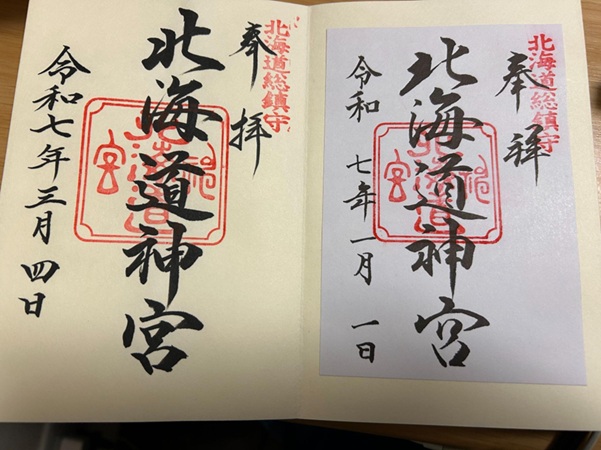 北海道総鎮守
奉拝
北海道神宮
北海道神宮
令和七年一月一日
北海道総鎮守
奉拝
北海道神宮
北海道神宮
令和七年三月四日